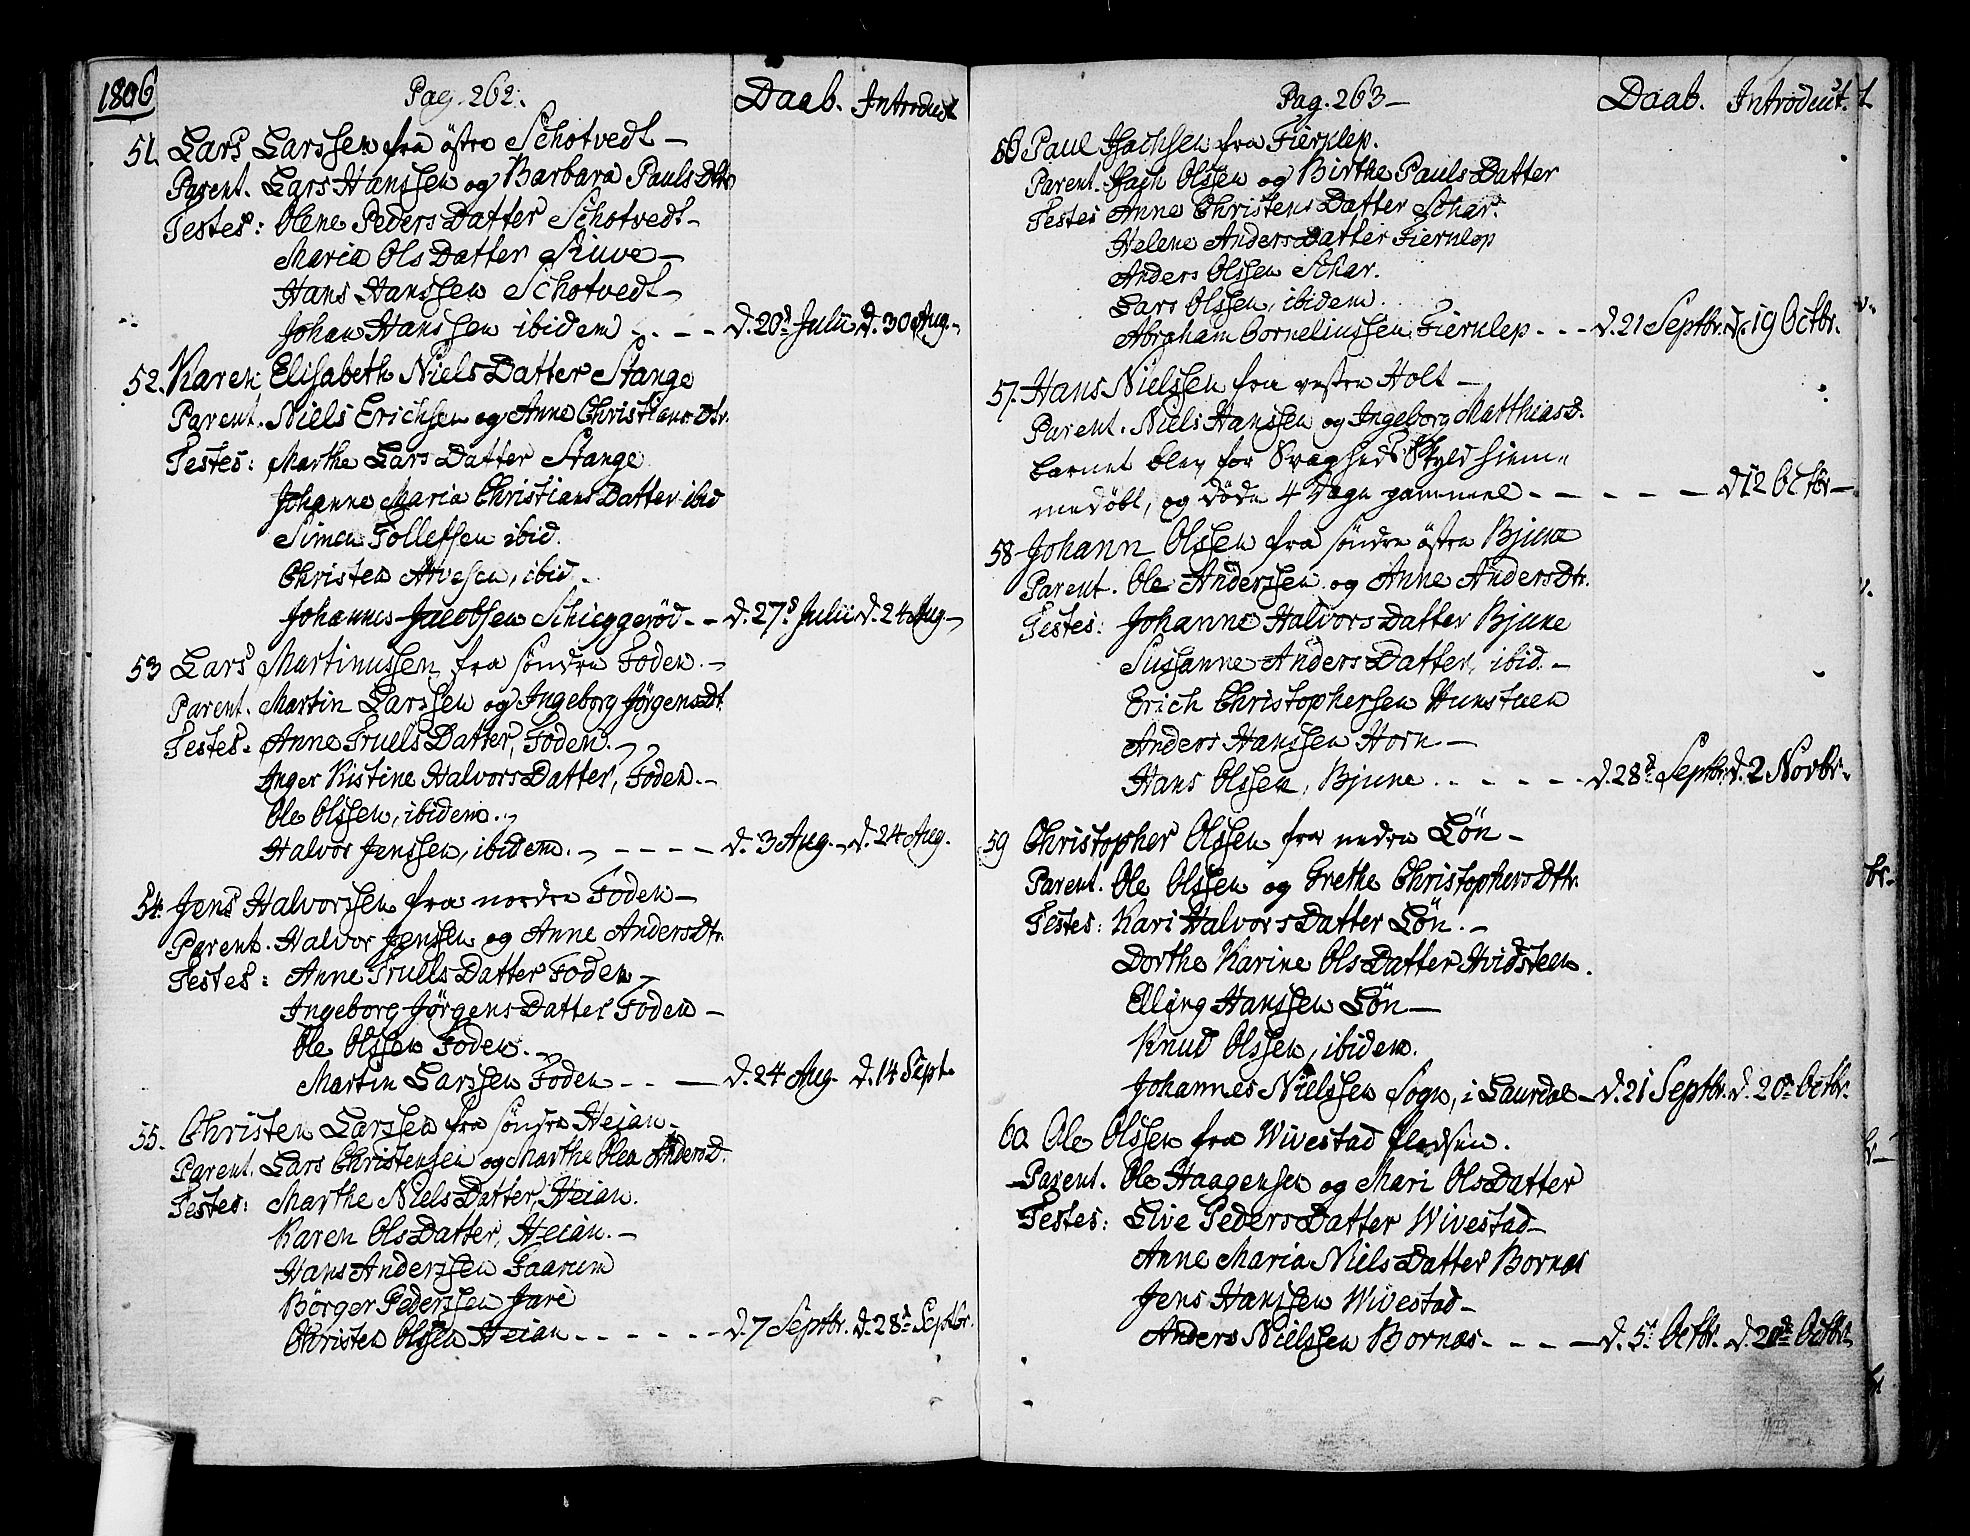 1806
Pag. 262. Daab. Introduct
51. Lars Larssen fra östre Schotvedt
Parent. Lars Hanssen og Barbara Pauls Dtr
Testes: Olene Peders Datter Schotvedt
Maria Ols Datter Ruve
Hans Hanssen Schotvedt
Johan Hanssen ibidem d. 20d Julii d. 30 Aug.
52. Karen Elisabeth Niels Datter Stange
Parent. Niels Erichsen og Anne Christians Dtr.
Testes: Marthe Lars Datter Stange
Johanne Maria Christians Datter ibid
Simen Tollefsen ibid.
Christen Arvesen, ibid.
Johannes Jacobsen Schieggeröd d. 27d Julii d. 24 Aug
53 Lars Martinussen fra söndre Foden.
Parent. Martin Larssen og Ingeborg Jörgens Dt.
Testes. Anne Truels Datter, Foden.
Inger Kistine Halvors Datter, Foden.
Ole Olssen, ibidem.
Halvor Jenssen, ibidem. d. 3 Aug. d. 24 Aug.
54. Jens Halvorssen fra nordre Foden
Parent. Halvor Jenssen og Anne Anders Dtr.
Testes: Anne Truels Datter Foden
Ingeborg Jörgens Datter Foden
Ole Olssen Foden.
Martin Larssen Foden d. 24 Aug. d. 14 Sept.
55. Christen Larssen fra söndre Heian
Parent. Lars Christensen og Marthe Olea Anders D.
Testes: Marthe Niels Datter, Heian.
Karen Ols Datter, Heian.
Hans Anderssen Faarum
Börger Pederssen Jare
Christen Olssen Heian d. 7 Septbr. d. 28d Septbr.
Pag. 263 Daab. Introduct.
56 Paul Isachsen fra Fierulep.
Parent. Isach Olssen og Birthe Pauls Datter
Testes Anne Christens Datter Schar.
Helene Anders Datter Fierulep
Anders Olssen Schar.
Lars Olssen, ibidem.
Abraham Corneliussen Fierulep d. 21 Septbr. d. 19 Octbr.
57. Hans Nielssen fra vestre Holt
Parent. Niels Hanssen og Ingeborg Matthias D.
barnet blev for Svagheds Skyld hiem-
medöbt, og döde 4 Dage gammel d 12 Octbr
58 Johann Olssen fra söndre östre Bjune
Parent. Ole Anderssen og Anne Anders Dtr.
Testes: Johanne Halvors Datter Bjune
Susanne Anders Datter, ibid.
Erich Christophersen Hunstuen
Anders Hanssen Horn
Hans Olssen, Bjune d. 28d Septbr d. 2 Novbr.
59 Christopher Olssen fra nedre Lön
Parent. Ole Olssen og Grethe Christophers Dtr.
Testes: Kari Halvors Datter Lön.
Dorthe Karine Ols Datter Hvidsteen.
Elling Hanssen Lön
Knud Olssen, ibidem.
Johannes Nielssen Sogn, i Laurdal d. 21 Septbr. d. 20d Octbr.
60. Ole Olssen fra Wivestad Pladsen.
Parent. Ole Haagensen og Mari Ols Datter
Testes: Live Peders Datter Wivestad
Anne Maria Niels Datter Bornæs
Jens Hanssen Wivestad
Anders Nielssen Bornæs d. 5t Octbr. d. 20de Octbr.